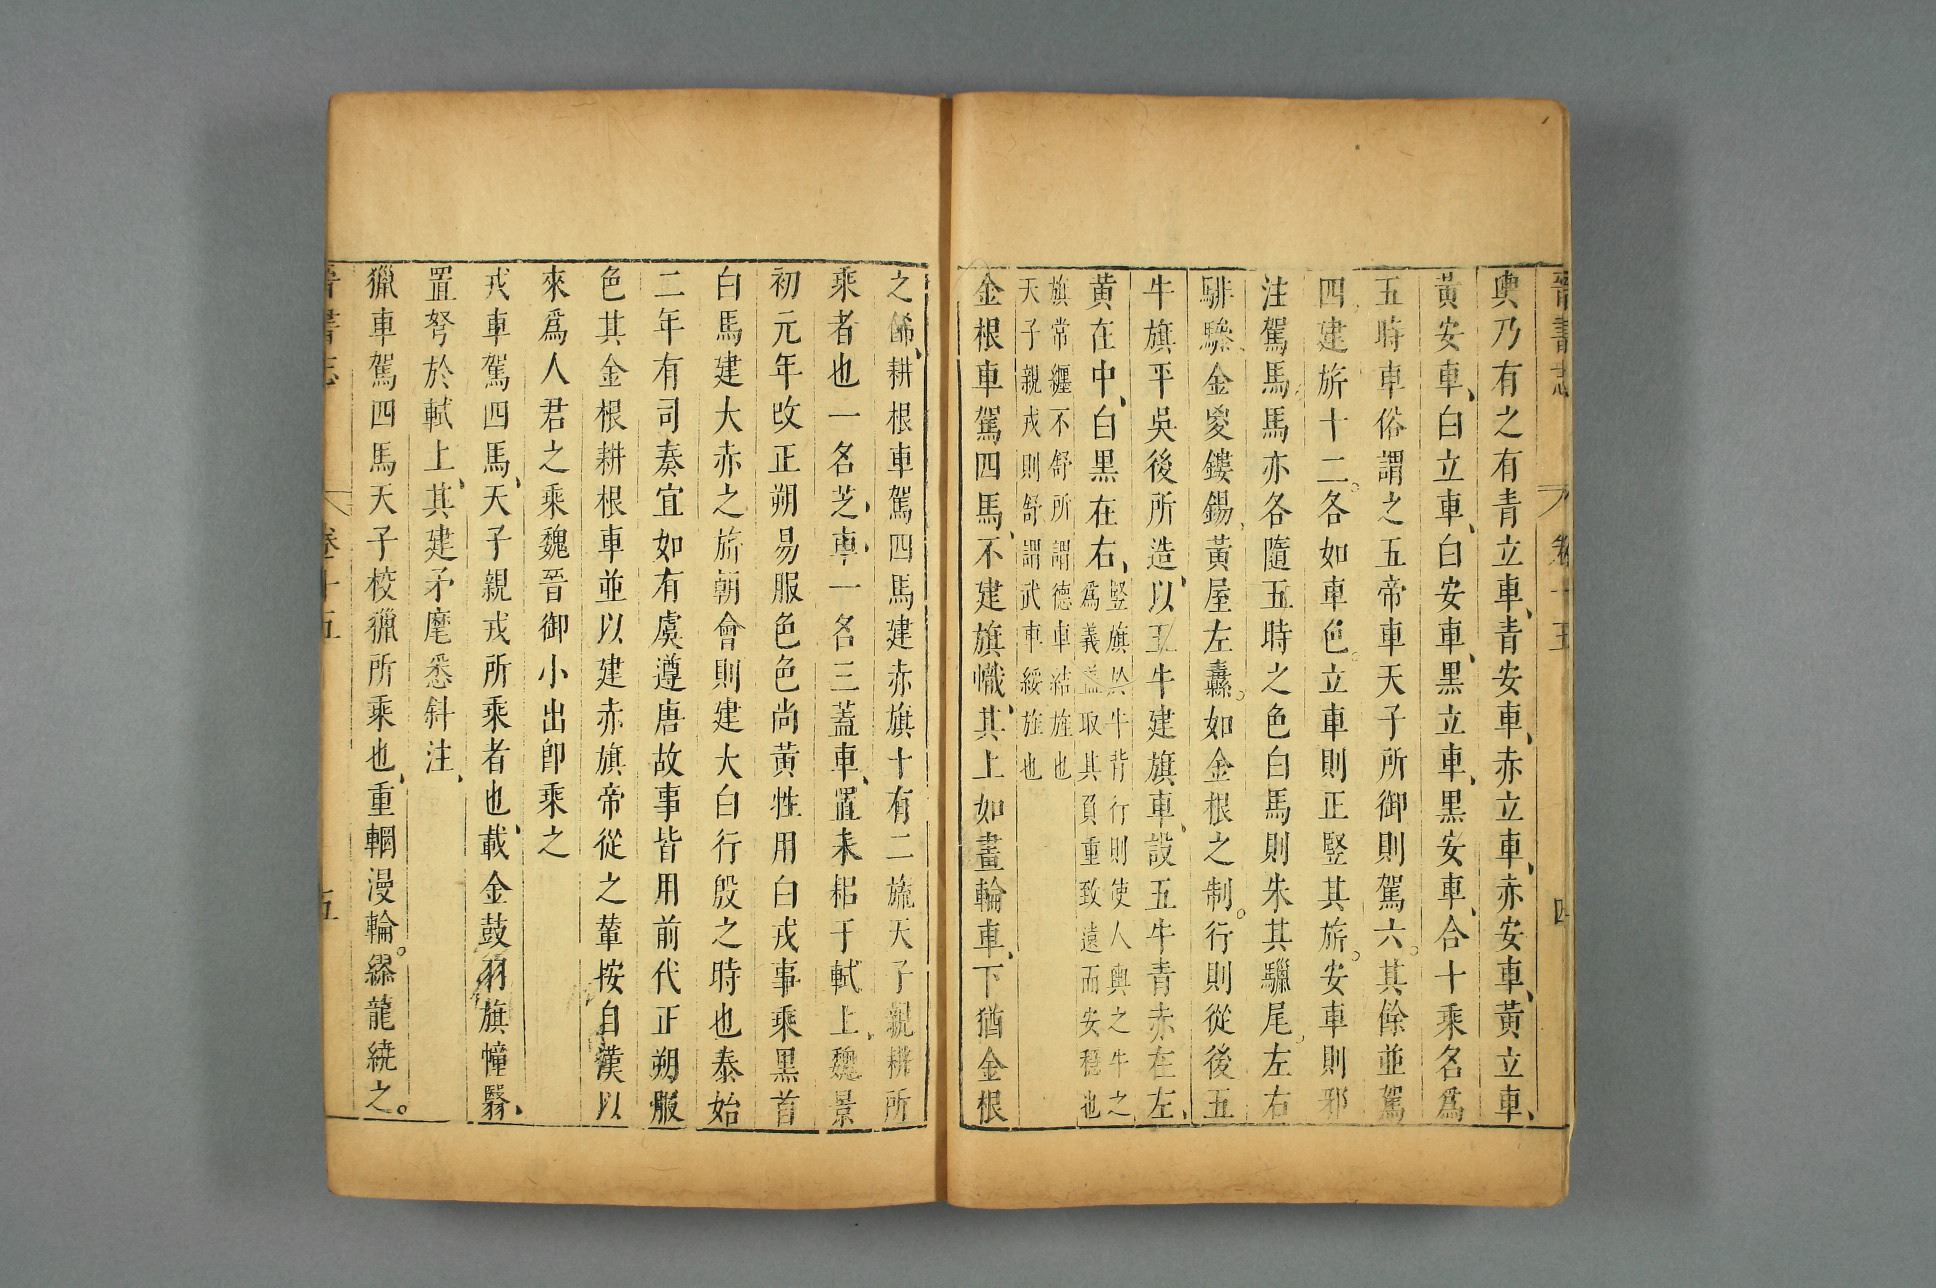 晉書志 卷十五 四
輿乃有之有青立車、青安車、赤立車、赤安車、黃立車、
黃安車、白立車、白安車、黑立車、黑安車、合十乘名爲
五時車俗謂之五帝車天子所御則駕六。其餘並駕
四建旂十二。各如車色。立車則正豎其旂。安車則邪
注駕馬馬亦各隨五時之色白馬則朱其驪尾左右
騑驂、金㚇鏤錫、黃屋左纛。如金根之制。行則從後五
牛旗平吳後所造、以五牛建旗車、設五牛青赤在左、
黃在中、白黑在右、豎旗於牛背行則使人輿之牛之
爲義蓋取其負重致遠而安穩也
旗常纏不舒所謂德車結旌也
天子親戎則舒謂武車綏旌也
金根車駕四馬、不建旗幟、其上如畫輪車、下猶金根
之飾、耕根車駕四馬建赤旗十有二旒天子親耕所
乘者也一名芝車、一名三蓋車、置耒耜于軾上、魏景
初元年改正朔易服色色尚黃牲用白戎事乘黑首
白馬建大赤之旂朝會則建大白行殷之時也泰始
二年有司奏宜如有虞遵唐故事皆用前代正朔服
色其金根耕根車並以建赤旗帝從之輦按自漢以
來爲人君之乘魏晉御小出卽乘之
戎車駕四馬、天子親戎所乘者也、載金鼓羽旗幢翳、
置弩於軾上、其建矛麾悉斜注、
獵車駕四馬天子校獵所乘也、重輞漫輪。繆龍繞之。
晉書志 卷十五 五